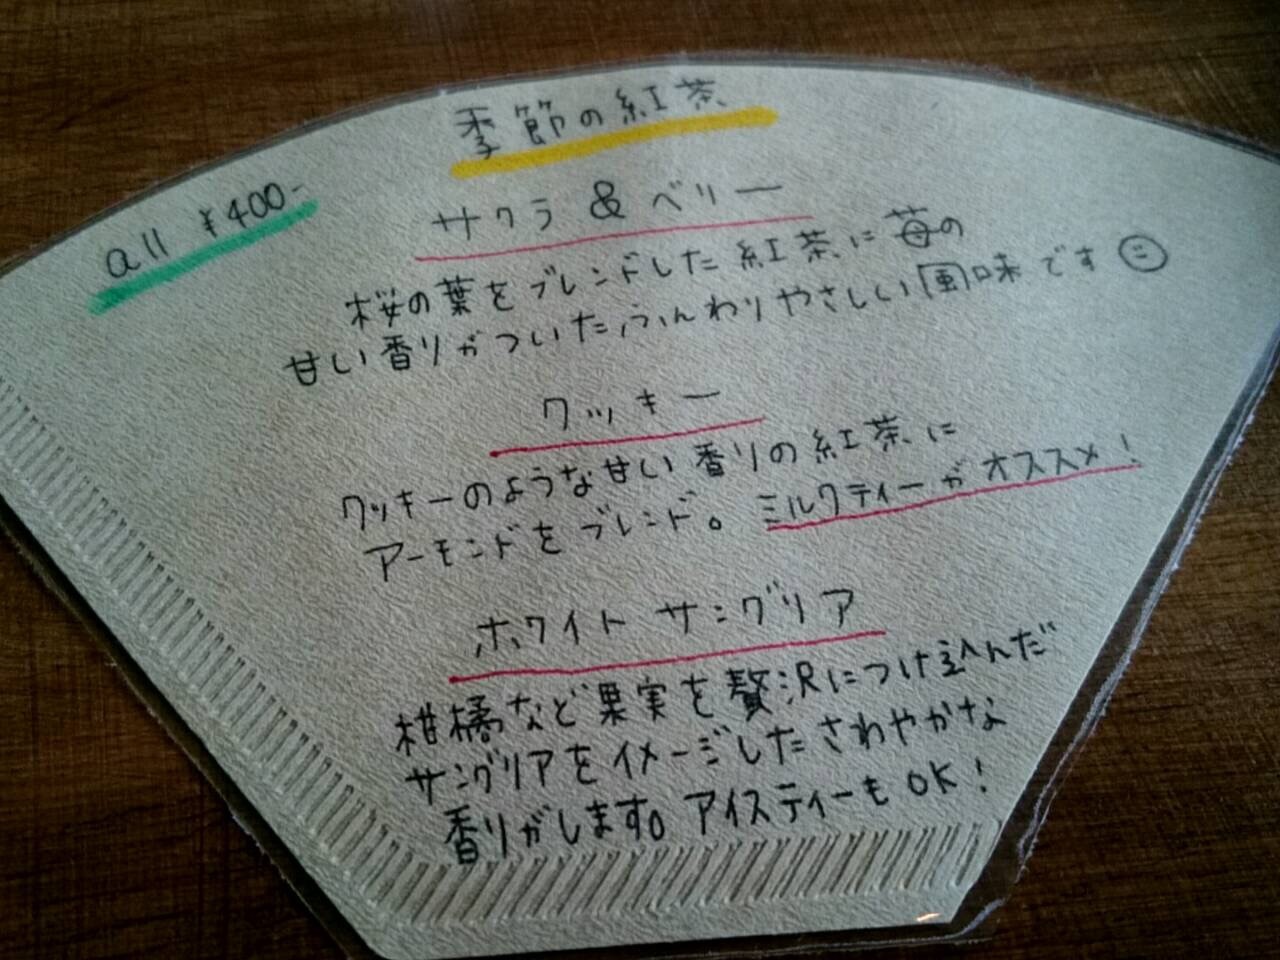 季節の紅茶
all ¥400-
サクラ & ベリー
桜の葉をブレンドした紅茶に苺の
甘い香りがついた、ふんわりやさしい風味です
クッキー
クッキーのような甘い香りの紅茶に
アーモンドをブレンド。ミルクティーがオススメ!
ホワイト サングリア
柑橘など果実を贅沢につけ込んだ
サングリアをイメージしたさわやかな
香りがします。アイスティーもOK!